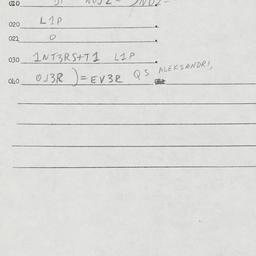 020
020 L1P
021 0
030 1NT3RS+T1 L1P
040 OJ3R ) = EV3R QS ALEKSANDRI,